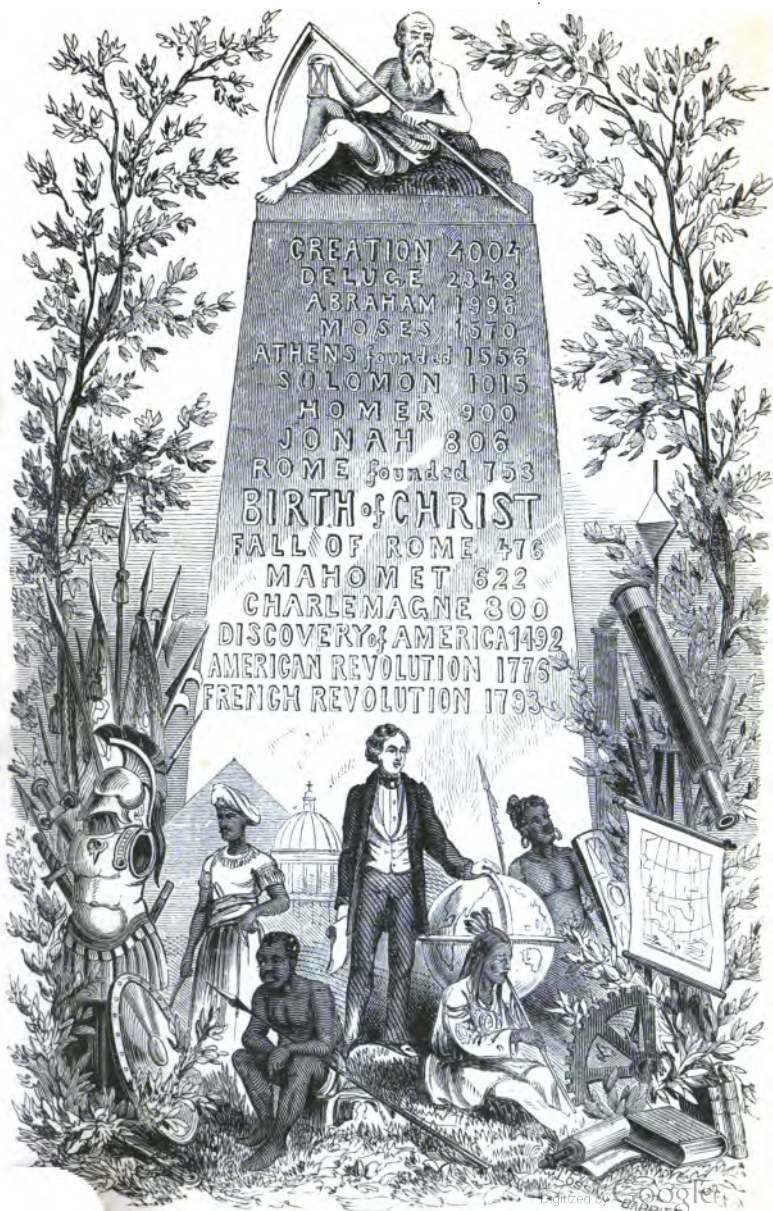 CREATION 4004
DELUGE 2348
ABRAHAM 1996
MOSES 1570
ATHENS founded 1556
SOLOMON 1015
HOMER 900
JONAH 806
ROME founded 753
BIRTH of CHRIST
FALL OF ROME 476
MAHOMET 622
CHARLEMAGNE 800
DISCOVERY of AMERICA 1492
AMERICAN REVOLUTION 1776
FRENCH REVOLUTION 1793
Digitized by Google